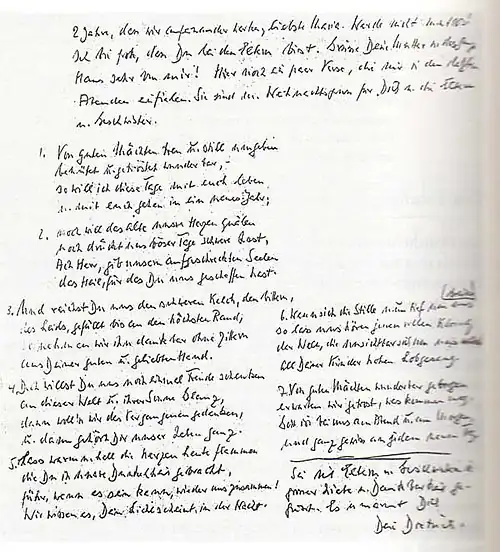 2 Jahre, dass wir aufeinander warten, liebste Maria. Werde nicht mutlos!
Ich bin froh, dass Du bei den Eltern bist. Grüsse Deine Mutter u. das ganze
Haus sehr von mir! Hier noch ein paar Verse, die mir in den letzten
Abenden einfielen. Sie sind der Weihnachtsgruss für Dich u. die Eltern
u. Geschwister.
1. Von guten Mächten treu u. still umgeben
behütet u. getröstet wunderbar, -
so will ich diese Tage mit euch leben
u. mit euch gehen in ein neues Jahr;
2. noch will das alte unsre Herzen quälen
noch drückt uns böser Tage schwere Last,
Ach Herr, gib unsern aufgeschreckten Seelen
das Heil, für das Du uns geschaffen hast.
3. Und reichst Du uns den schweren Kelch, den bittern,
des Leids, gefüllt bis an den höchsten Rand,
so nehmen wir ihn dankbar ohne Zittern
aus Deiner guten u. geliebten Hand.
4. Doch willst Du uns noch einmal Freude schenken
an dieser Welt u. ihrer Sonne Glanz,
dann woll'n wir des Vergangenen gedenken,
u. dann gehört Dir unser Leben ganz.
5. Lass warm u. hell die Kerzen heute flammen
die Du in unsre Dunkelheit gebracht,
führ, wenn es sein kann, wieder uns zusammen!
Wir wissen es, Dein Licht scheint in der Nacht.
6. Wenn sich die Stille nun tief um uns
so lass uns hören jenen vollen Klang
der Welt, die unsichtbar sich um uns
all Deiner Kinder hohen Lobgesang.
7. Von guten Mächten wunderbar geborgen
erwarten wir getrost, was kommen mag.
Gott ist bei uns am Abend u. am Morgen
und ganz gewiss an jedem neuen Tag.
Sei mit Eltern u. Geschwistern
grosser Liebe u. Dankbarkeit ge-
grüsst. Es umarmt Dich
Dein Dietrich.